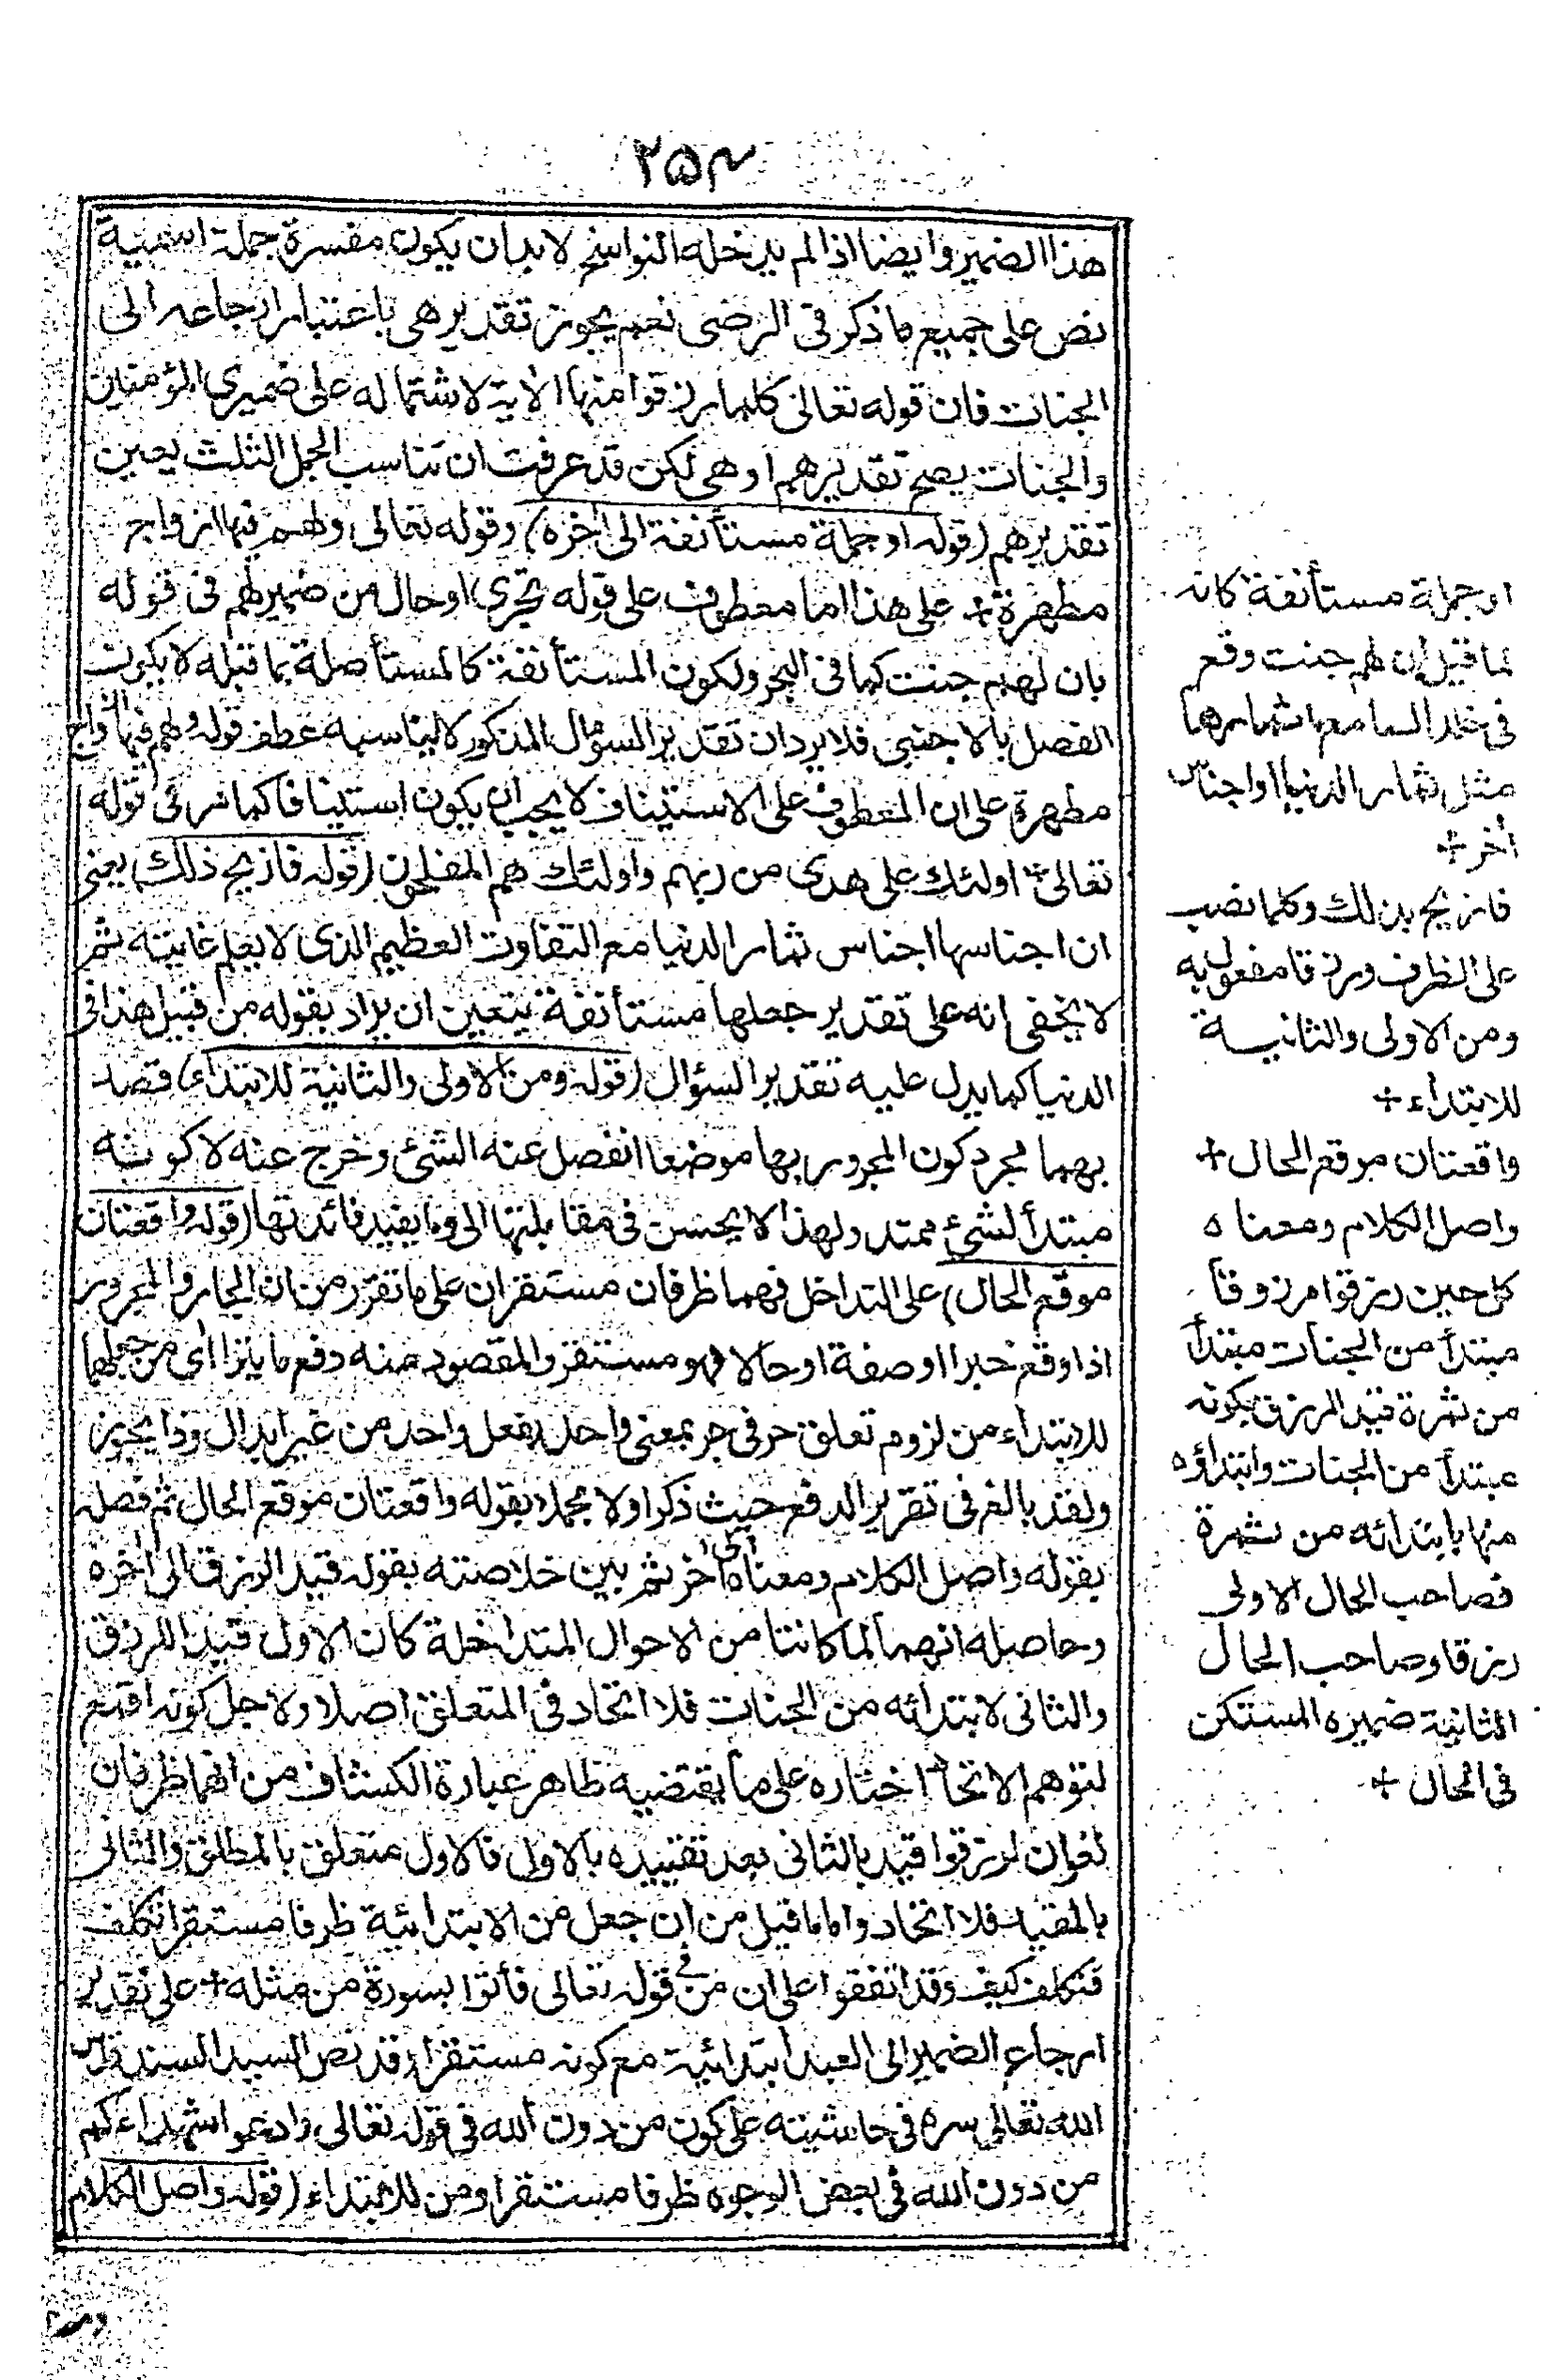 ٢٥٣
هذا الضمير وايضا اذا لم يدخله النواسخ لا بد ان يكون مفسرة جملة اسمية
نص على جميع ما ذكر فى الرضى نعم يجوز تقدير هى باعتبار ارجاعه الى
الجنات فان قوله تعالى كلما رزقوا منها الاية لاشتماله على ضميرى المؤمنين
والجنات يصح تقديرهم او هى لكن قد عرفت ان تناسب الجمل الثلث يعين
تقديرهم (قوله او جملة مستأنفة الى اخره) وقوله تعالى ولهم فيها ازواج
مطهرة + على هذا اما معطوف على قوله تجرى او حال من ضميرلهم فى قوله
بان لهم جنت كما فى البحر ولكون المستأنفة كالمستأصلة بما قبله لا يكون
الفصل بالاجنبى فلا يرد ان تقدير السؤال المذكور لا يناسبه عطف قوله ولهم فيها ازواج
مطهرة على ان المعطوف على الاستيناف لا يجب ان يكون استينافا كما مر فى قوله
تعالى اولئك على هدى من ربهم واولئك هم المفلحون (قوله فازيح ذلك) يعنى
ان اجناسها اجناس ثمار الدنيا مع التفاوت العظيم الذى لا يعلم غايته ثم
لا يخفى انه على تقدير جعلها مستأنفة يتعين ان يراد بقوله من قبل هذا فى
الدنيا كما يدل عليه تقدير السؤال (قوله ومن الاولى والثانية للابتداء) قصد
بهما مجرد كون المجرور بها موضعا انفصل عنه الشئ وخرج عنه لا كونه
مبتدأ لشئ ممتد ولهذا لا يحسن فى مقابلتها الى وما يفيد فائدتها (قوله واقعتان
موقع الحال) على التداخل فهما ظرفان مستقران على ما تقرر من ان الجار والمجرور
اذا وقع خبرا او صفة او حالا فهو مستقر والمقصود منه دفع ما يترا اى من جعلهما
للابتداء من لزوم تعلق حرفى جر بمعنى واحد بفعل واحد من غير ابدال وذا يجوز
ولقد بالغ فى تقرير الدفع حيث ذكر اولا مجملا بقوله واقعتان موقع الحال ثم فصله
بقوله واصل الكلام ومعناه الى اخر ثم بين خلاصته بقوله قيد الرزق الى اخره
وحاصله انهما لما كانتا من الاحوال المتداخلة كان الاول قيدا للرزق
والثانى لابتدائه من الجنات فلا اتحاد فى المتعلق اصلا ولاجل كونه اقمع
لتوهم الاتحاد اختاره على ما يقتضيه ظاهر عبارة الكشاف من انهما ظرفان
لغوان لرزقوا قيد بالثانى بعد تقييده بالاول فالاول متعلق بالمطلق والثانى
بالمقيد فلا اتحاد واما ما قيل من ان جعل من الابتدائية ظرفا مستقرا تكلف
فتكلف كيف وقد اتفقوا على ان من فى قوله تعالى فأتوا بسورة من مثله + على تقدير
ارجاع الضمير الى العبد ابتدائية مع كونه مستقرا وقد نص السيد السند قدس
الله تعالى سره فى حاشيته على كون من دون الله فى قوله تعالى وادعوا شهداءكم
من دون الله فى بعض الوجوه ظرفا مستقرا ومن للابتداء (قوله واصل الكلام
او جملة مستأنفة كانه
لما قيل ان لهم جنت وقع
فى خلد السامع اثمارها
مثل ثمار الدنيا او اجناس
أخر +
فازيح بذلك وكلما نصب
على الظرف ورزقا مفعول به
ومن الاولى والثانية
للابتداء +
واقعتان موقع الحال +
واصل الكلام ومعناه
كل حين رزقوا مرزوقا
مبتدأ من الجنات مبتدأ
من ثمرة قيد الرزق بكونه
مبتدأ من الجنات وابتداؤه
منها بابتدائه من ثمرة
فصاحب الحال الاولى
رزقا وصاحب الحال
الثانية ضميره المستكن
فى الحال +